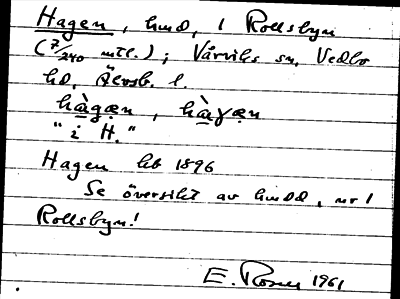 Hagen, hmd, i Rollsbyn
(7/240 mtl.); Vårviks sn, Vedbo
hd, Älvsb. l.
hàgæn, hàγæn
"i H."
Hagen hb 1896
Se översikt av hmdd, nr 1
Rollsbyn!
E. Rosén 1961